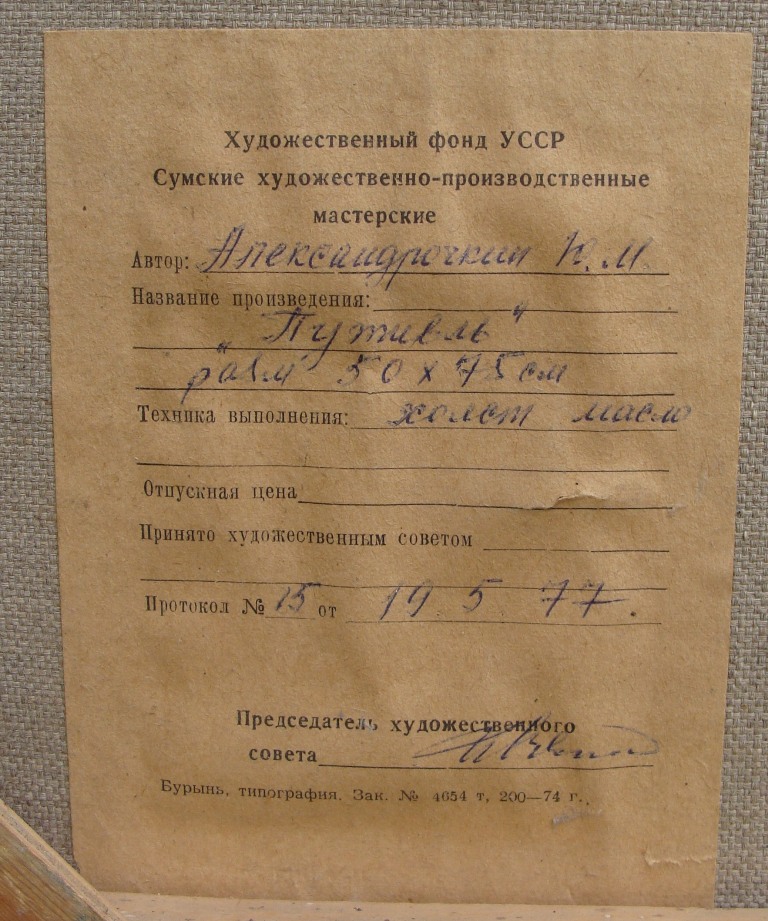 Художественный фонд УССР
Сумские художественно-производственные
мастерские
Автор: Александрочкин Ю. М.
Название произведения:
„Путивль“
разм 50 х 75 см
Техника выполнения: холст масло
Отпускная цена
Принято художественным советом
Протокол № 15 от 19 5. 77.
Председатель художественного
совета
Бурынь, типография. Зак. № 4654 т, 200—74 г.